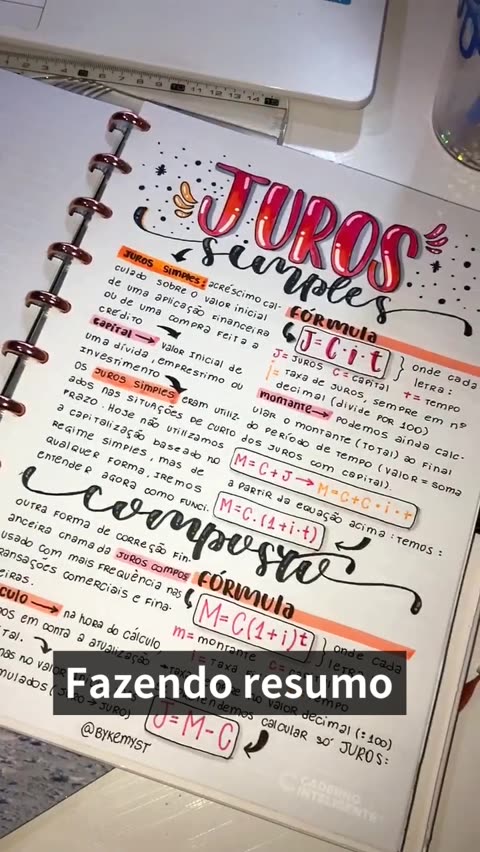 JUROS
simples
JUROS SIMPLES: acréscimo cal-
culado sobre o valor inicial
de uma aplicação financeira
ou de uma compra feita a
crédito
capital → valor inicial de
uma dívida, empréstimo ou
investimento
OS JUROS SIMPLES eram utiliz
ados nas situações de curto
prazo. Hoje não utilizamos
a capitalização baseado no
regime simples, mas de
qualquer forma, iremos
entender agora como funci.
FÓRMULA
J=C·i·t } onde cada
letra:
J= juros C= capital t= tempo
i= taxa de juros, sempre em nº
decimal (divide por 100)
montante → Podemos ainda calc-
ular o montante (total) ao final
do período de tempo (valor = soma
dos juros com capital).
M=C+J → M=C+C·i·t
a partir da equação acima, temos:
M=C·(1+i·t)
composto
outra forma de correção fin-
anceira chamada JUROS COMPOS
usado com mais frequência nas
transações comerciais e fina-
eiras.
culo → na hora do cálculo,
os em conta a atualização
ital.
mas no valor
mulados (juro → juro)
FÓRMULA
M=C(1+i)t } onde cada
letra
m= montante
i= taxa
no valor decimal (÷100)
endemos calcular só JUROS:
J=M-C
@BYKEMYST
CADERNO
INTELIGENTE
Fazendo resumo